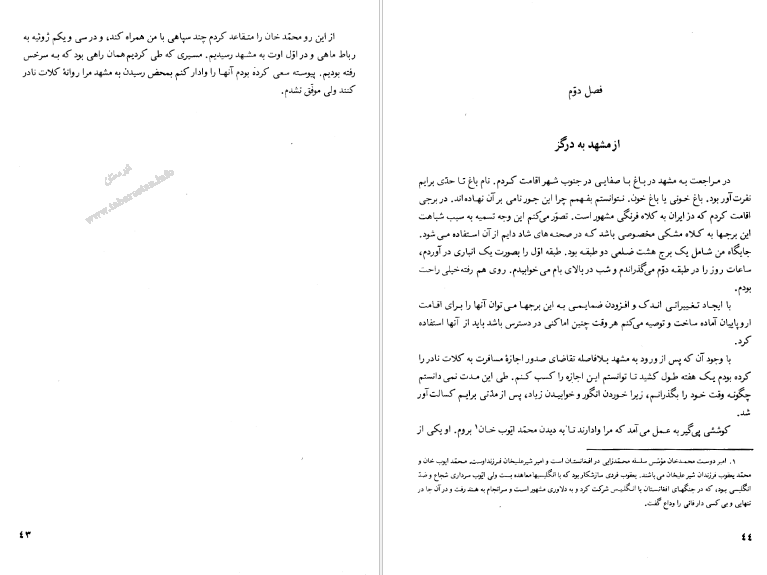 از این رو محمّد خان را متقاعد کردم چند سپاهی با من همراه کند، و در سی و یکم ژوئیه به
رباط ماهی و در اوّل اوت به مشهد رسیدیم. مسیری که طی کردیم همان راهی بود که به سرخس
رفته بودیم. پیوسته سعی کرده بودم آنها را وادار کنم بمحض رسیدن به مشهد مرا روانهٔ کلات نادر
کنند ولی موفّق نشدم.
www.tabarestan.info
تبرستان
۴۳
فصل دوّم
از مشهد به درگز
در مراجعت به مشهد در باغ با صفایی در جنوب شهر اقامت کردم. نام باغ تا حدّی برایم
نفرت‌آور بود. باغ خونی یا باغ خون. نتوانستم بفهمم چرا این جور نامی بر آن نهاده‌اند. در برجی
اقامت کردم که در ایران به کلاه فرنگی مشهور است. تصوّر می‌کنم این وجه تسمیه به سبب شباهت
این برجها به کلاه مشکی مخصوصی باشد که در صحنه‌های شاد دایم از آن استفاده می‌شود.
جایگاه من شامل یک برج هشت ضلعی دو طبقه بود. طبقه اوّل را بصورت یک انباری در آوردم،
ساعات روز را در طبقه دوّم می‌گذراندم و شب در بالای بام می‌خوابیدم. روی هم رفته خیلی راحت
بودم.
با ایجاد تغییراتی اندک و افزودن ضمایمی به این برجها می‌توان آنها را برای اقامت
اروپاییان آماده ساخت و توصیه می‌کنم هر وقت چنین اماکنی در دسترس باشد باید از آنها استفاده
کرد.
با وجود آن که پس از ورود به مشهد بلافاصله تقاضای صدور اجازهٔ مسافرت به کلات نادر را
کرده بودم یک هفته طول کشید تا توانستم این اجازه را کسب کنم. طی این مدت نمی‌دانستم
چگونه وقت خود را بگذرانم، زیرا خوردن انگور و خوابیدن زیاد، پس از مدّتی برایم کسالت‌آور
شد.
کوششی پی‌گیر به عمل می‌آمد که مرا وادارند تا به دیدن محمّد ایّوب خان۱ بروم. او یکی از
۱. امیر دوست محمدخان مؤسّس سلسله محمّدزایی در افغانستان است و امیر شیرعلیخان فرزند اوست. محمّد ایوب خان و
محمّد یعقوب فرزندان شیر علیخان می‌باشند. یعقوب فردی سازشکار بود که با انگلیسیها معاهده بست ولی ایّوب سرداری شجاع و ضدّ
انگلیسی بود، که در جنگهای افغانستان با انگلیس شرکت کرد و به دلاوری مشهور است و سرانجام به هند رفت و در آن جا در
تنهایی و بی کسی دارفانی را وداع گفت.
۴۴